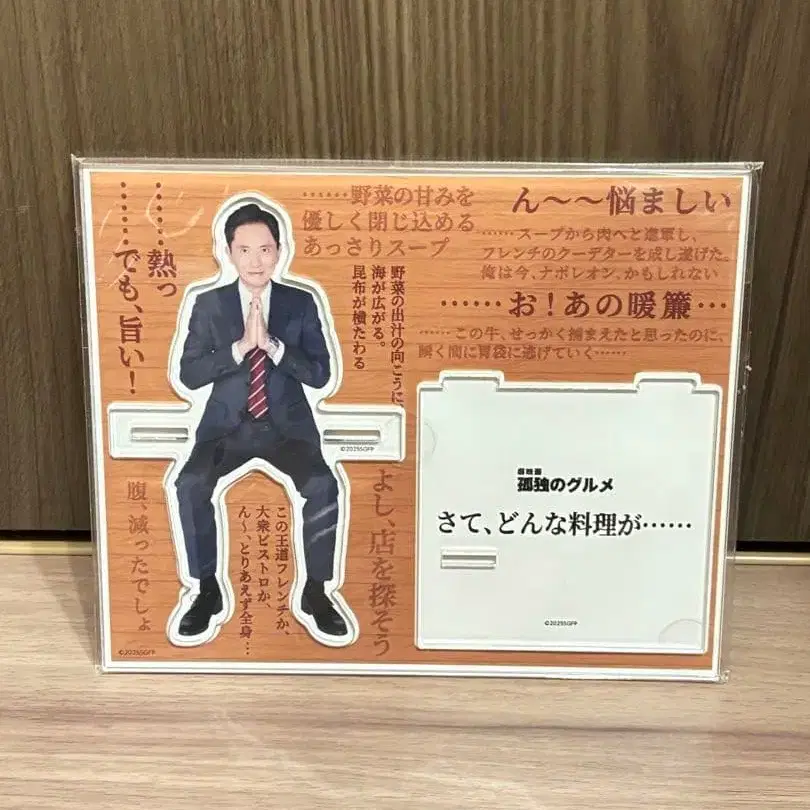 ……野菜の甘みを
優しく閉じ込める
あっさりスープ
ん〜〜悩ましい
……スープから肉へと進軍し、
フレンチのクーデターを成し遂げた。
俺は今、ナポレオン、かもしれない
……お！あの暖簾…
……この牛、せっかく捕まえたと思ったのに、
瞬く間に胃袋に逃げていく……
………熱っ
……でも、旨い！
野菜の出汁の向こうに、
海が広がる。
昆布が横たわる
©2025SGFP
腹、減ったでしょ
この王道フレンチか、
大衆ビストロか、
ん〜、とりあえず全身…
よし、店を探そう
劇映画
孤独のグルメ
さて、どんな料理が……
©2025SGFP
©2025SGFP